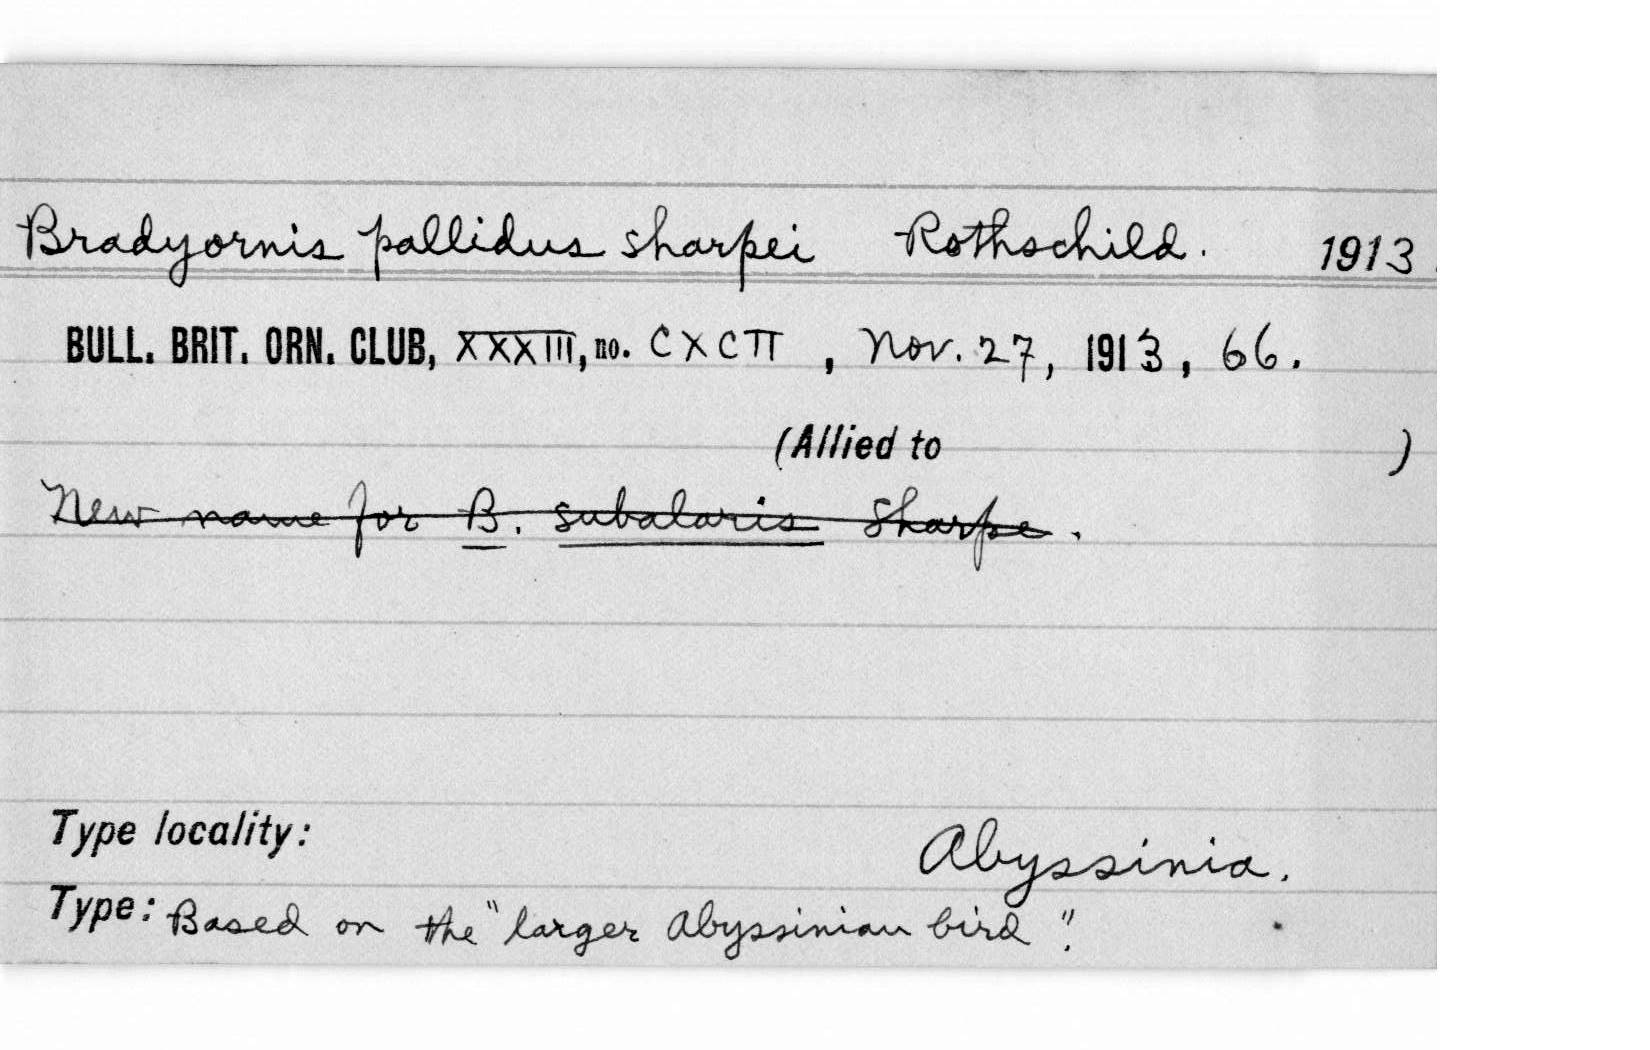 Bradyornis pallidus sharpei Rothschild. 1913.
BULL. BRIT. ORN. CLUB, XXXIII, no. CXCII, Nov. 27, 1913, 66.
(Allied to )
New name for B. subalaris Sharpe.
Type locality: Abyssinia.
Type: Based on the "larger Abyssinian bird".